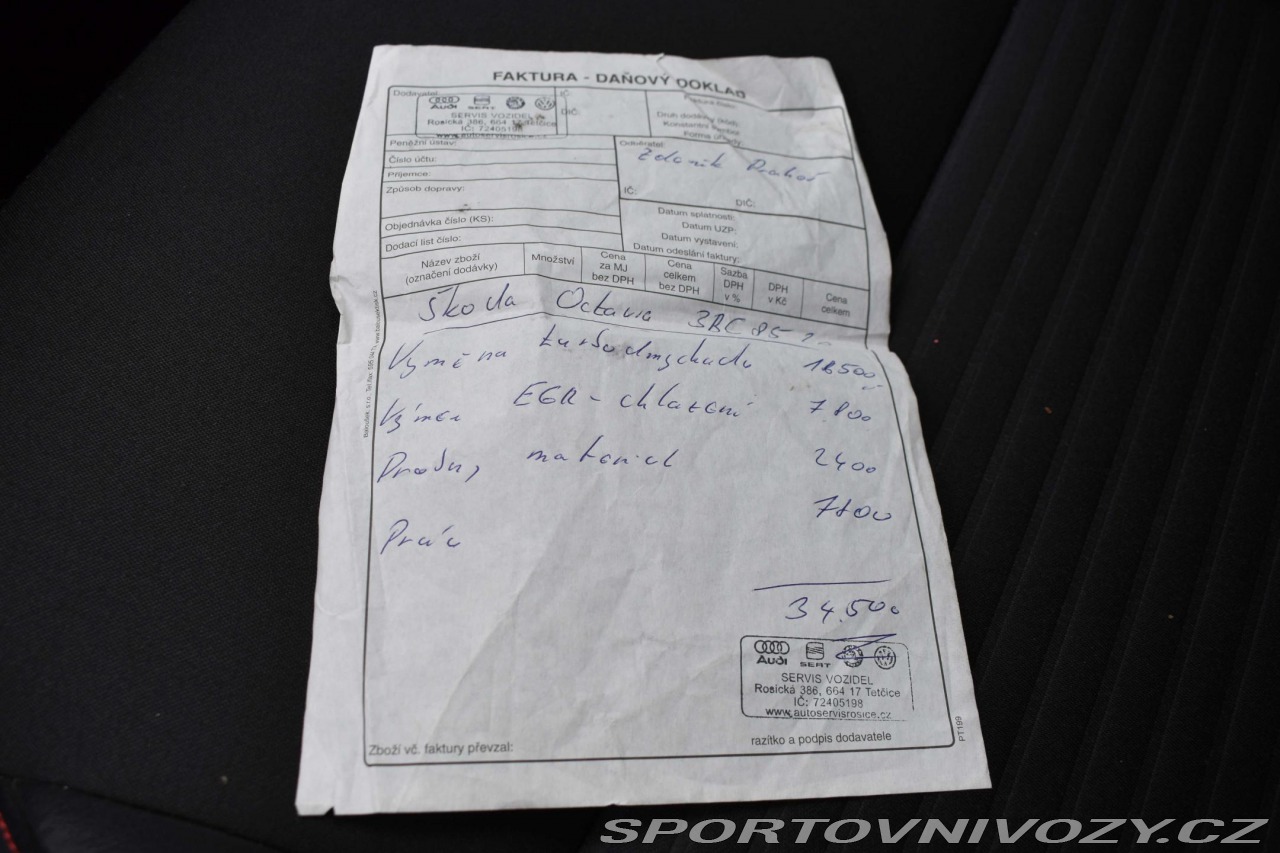 FAKTURA - DAŇOVÝ DOKLAD
Dodavatel:
IČ:
DIČ:
Druh dodávky (kód):
Konstantní symbol
Forma úhrady:
Audi SEAT
SERVIS VOZIDEL
Rosická 386, 664 17 Tetčice
IČ: 72405198
www.autoservisrosice.cz
Peněžní ústav:
Číslo účtu:
Příjemce:
Způsob dopravy:
Objednávka číslo (KS):
Dodací list číslo:
Odběratel:
Zdeněk
IČ:
DIČ:
Datum splatnosti:
Datum UZP:
Datum vystavení:
Datum odeslání faktury:
Název zboží (označení dodávky) Množství Cena za MJ bez DPH Cena celkem bez DPH Sazba DPH v % DPH v Kč Cena celkem
Škoda Octavia
Výměna turbodmychadla 18500
Výměn EGR - chlazení 7800
materiál 2400
Práce
34.500
Audi SEAT
SERVIS VOZIDEL
Rosická 386, 664 17 Tetčice
IČ: 72405198
www.autoservisrosice.cz
Zboží vč. faktury převzal:
razítko a podpis dodavatele
PT199
SPORTOVNIVOZY.CZ